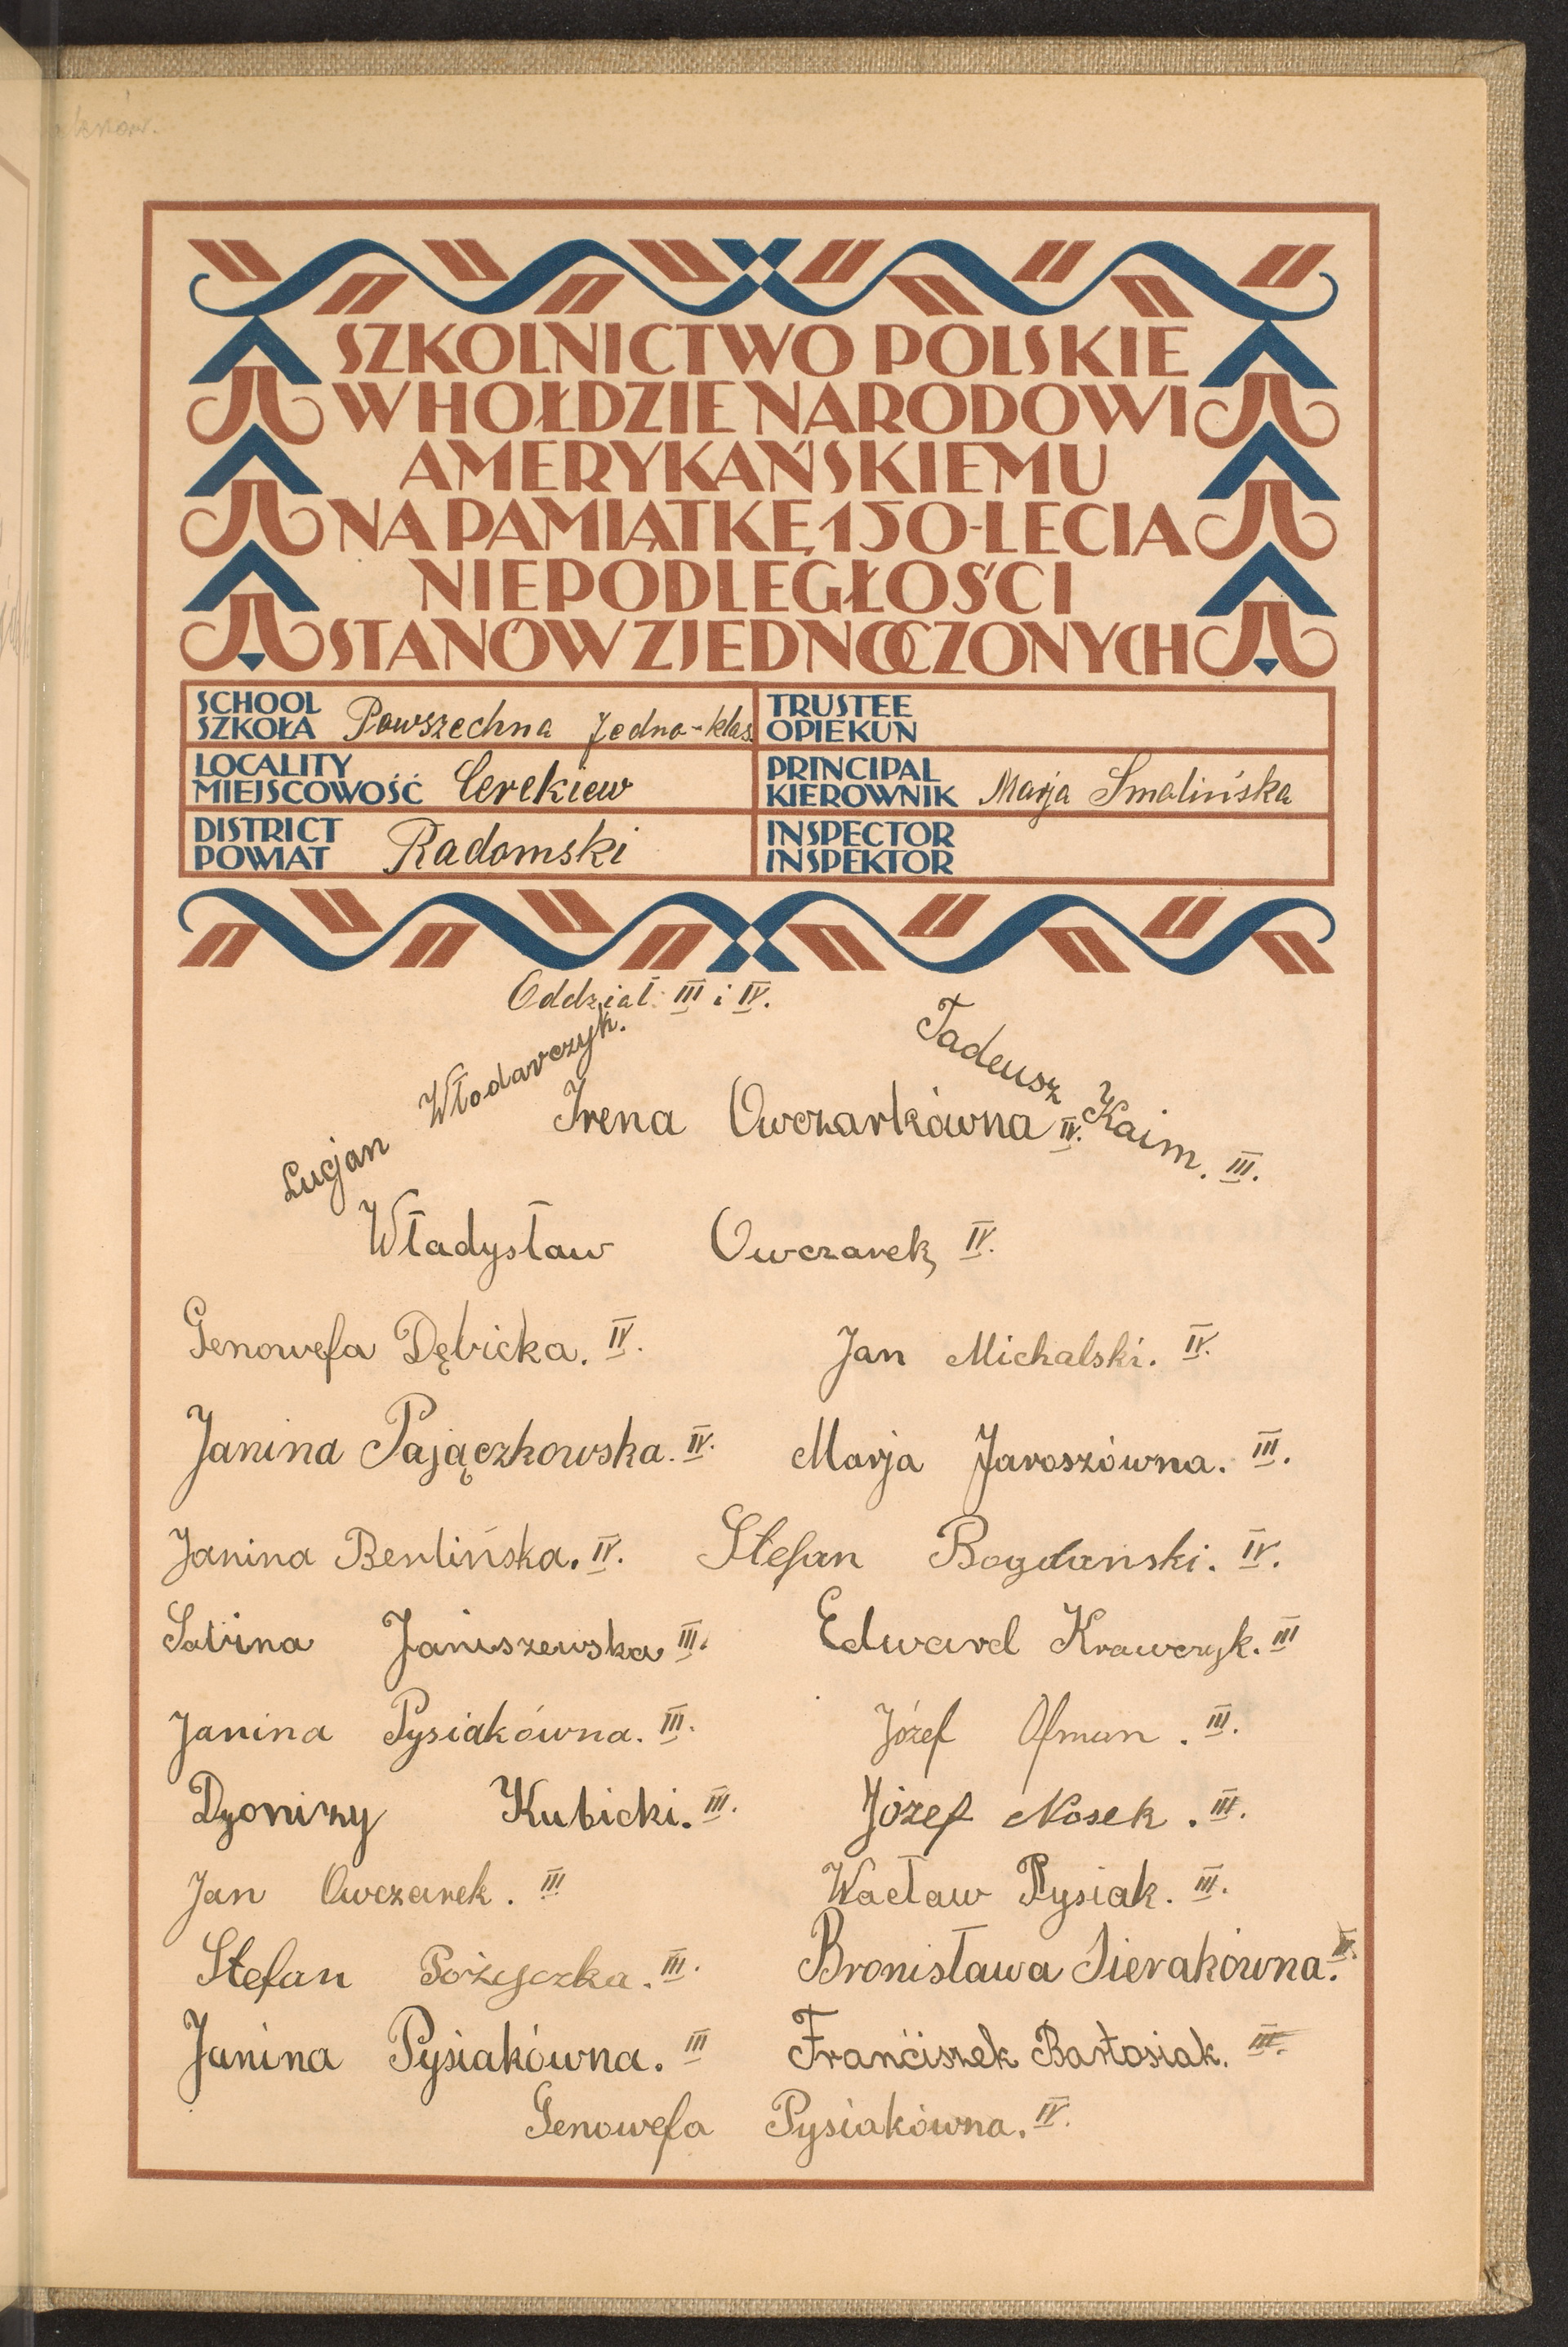 SZKOLNICTWO POLSKIE
W HOŁDZIE NARODOWI
AMERYKAŃSKIEMU
NA PAMIĄTKĘ 150-LECIA
NIEPODLEGŁOŚCI
STANÓW ZJEDNOCZONYCH
SCHOOL
SZKOŁA Powszechna Jedno-klas
TRUSTEE
OPIEKUN
LOCALITY
MIEJSCOWOŚĆ Cerekiew
PRINCIPAL
KIEROWNIK Marja Smolińska
DISTRICT
POWIAT Radomski
INSPECTOR
INSPEKTOR
Oddział III i IV.
Lucjan Włodarczyk.
Tadeusz Kaim. III.
Irena Owczarkówna IV.
Władysław Owczarek IV.
Genowefa Dębicka. IV.
Jan Michalski. IV.
Janina Pajączkowska. IV.
Marja Jaroszówna. III.
Janina Berlińska. IV.
Stefan Bogdański. IV.
Sabina Janiszewska III.
Edward Krawczyk. III
Janina Pysiakówna. III.
Józef Ofman. III.
Dyonizy Kubicki. III.
Józef Nosek. III.
Jan Owczarek. III
Wacław Pysiak. III.
Stefan Pożyczka. III.
Bronisława Sierakówna.
Janina Pysiakówna. III
Franciszek Bartosiak. III.
Genowefa Pysiakówna. IV.